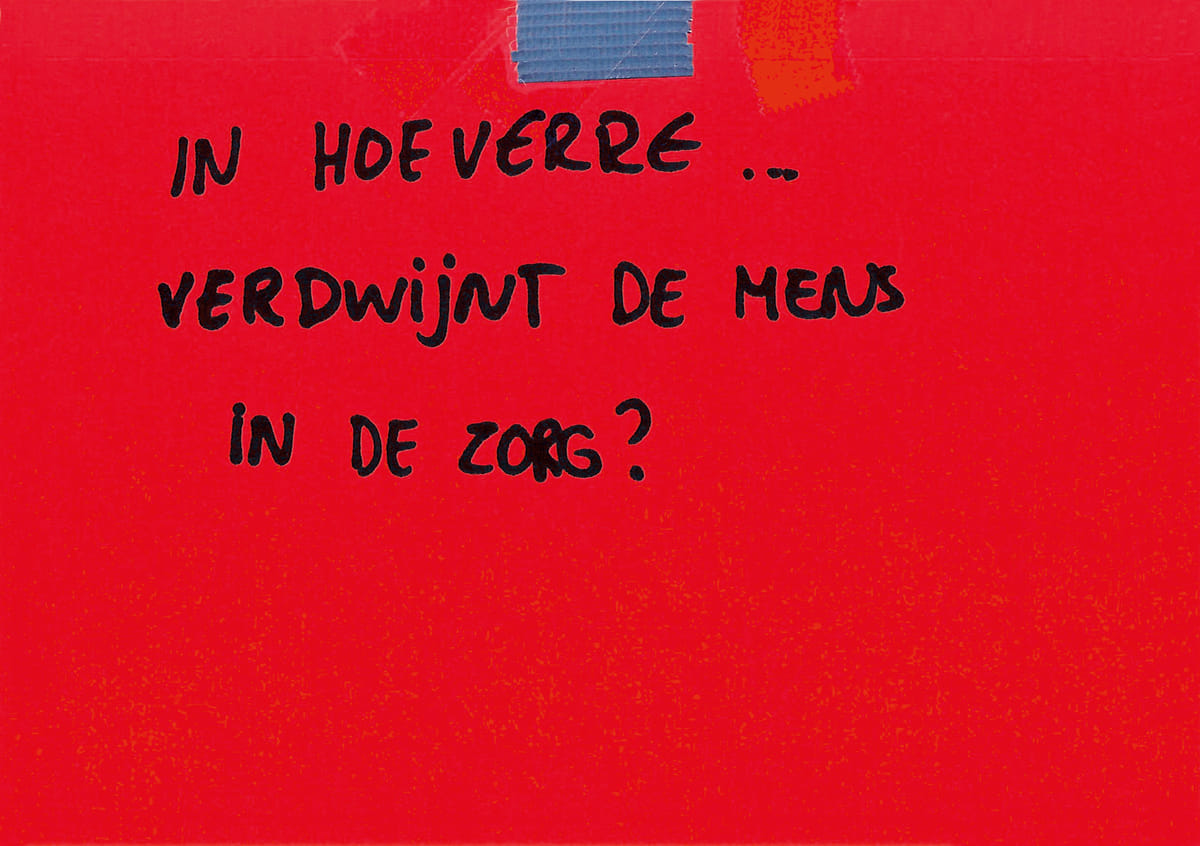 IN HOEVERRE ...
VERDWIJNT DE MENS
IN DE ZORG?